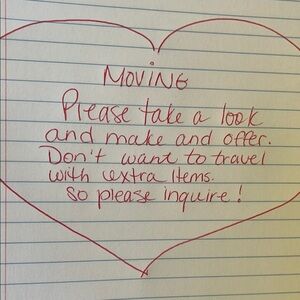 MOVING
Please take a look
and make and offer.
Don't want to travel
with extra Items.
so please inquire!